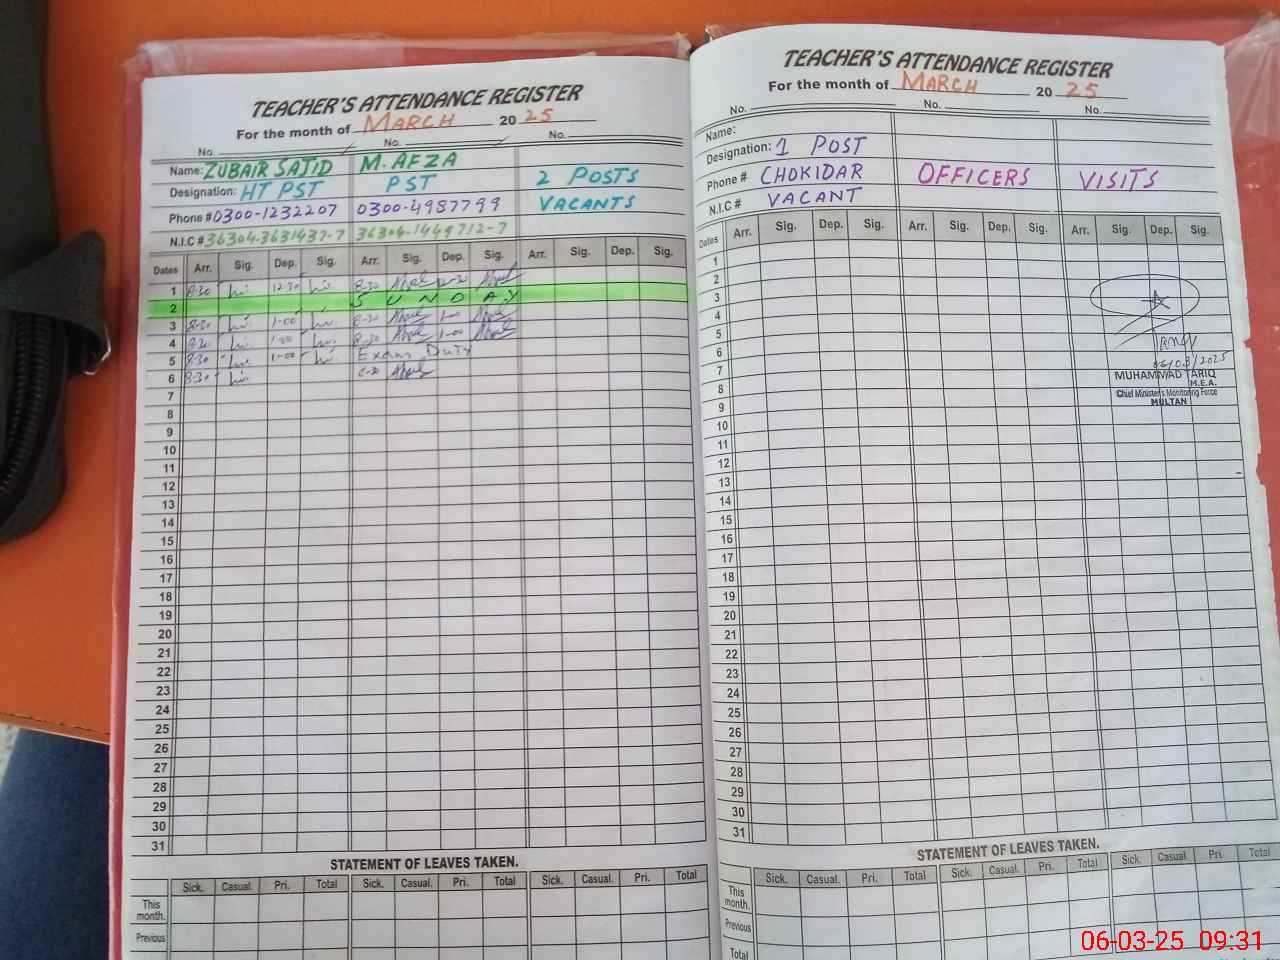 TEACHER'S ATTENDANCE REGISTER
For the month of MARCH 2025
No. No. No.
Name: ZUBAIR SAJID M. AFZA
Designation: HT PST PST 2 POSTS
Phone # 0300-1232207 0300-4987799 VACANTS
N.I.C # 36304-3631437-7 36304-1449712-7
Dates Arr. Sig. Dep. Sig. Arr. Sig. Dep. Sig. Arr. Sig. Dep. Sig.
1 8:30 12:30 8-30 12-30
2 SUNDAY
3 8-30 1-00 8-30 1-00
4 8:30 1-00 8-30 1-00
5 8-30 1-00 Exam Duty
6 8-30
7
8
9
10
11
12
13
14
15
16
17
18
19
20
21
22
23
24
25
26
27
28
29
30
31
STATEMENT OF LEAVES TAKEN.
Sick. Casual. Pri. Total Sick. Casual. Pri. Total Sick. Casual. Pri. Total
This month.
Previous
TEACHER'S ATTENDANCE REGISTER
For the month of MARCH 2025
No. No. No.
Name:
Designation: 1 POST
Phone # CHOKIDAR OFFICERS VISITS
N.I.C # VACANT
Dates Arr. Sig. Dep. Sig. Arr. Sig. Dep. Sig. Arr. Sig. Dep. Sig.
1
2
3
4
5
6
7
8
9
10
11
12
13
14
15
16
17
18
19
20
21
22
23
24
25
26
27
28
29
30
31
06/03/2025
MUHAMMAD TARIQ
M.E.A.
Chief Minister's Monitoring Force
MULTAN
STATEMENT OF LEAVES TAKEN.
Sick. Casual. Pri. Total Sick. Casual. Pri. Total Sick. Casual. Pri. Total
This month.
Previous
Total
06-03-25 09:31